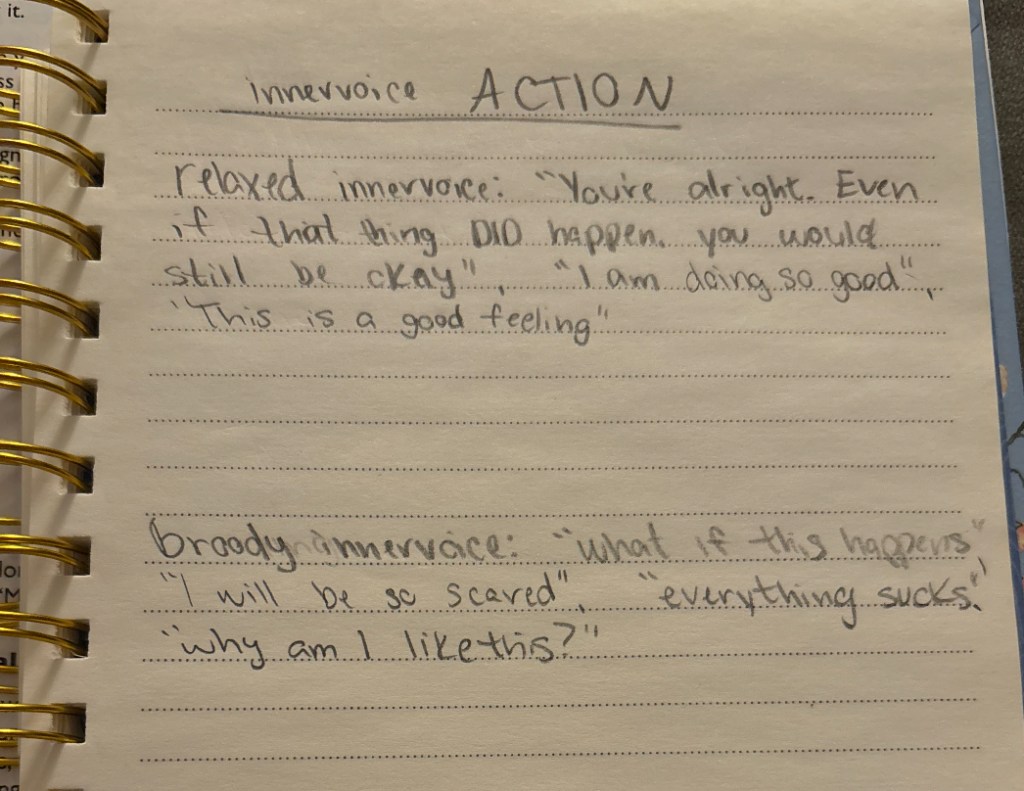 it.
innervoice ACTION
relaxed innervoice: "You're alright. Even
if that thing DID happen. you would
still be okay", "I am doing so good",
"This is a good feeling"
broody innervoice: "what if this happens",
"I will be so scared", "everything sucks."
"why am I like this?"